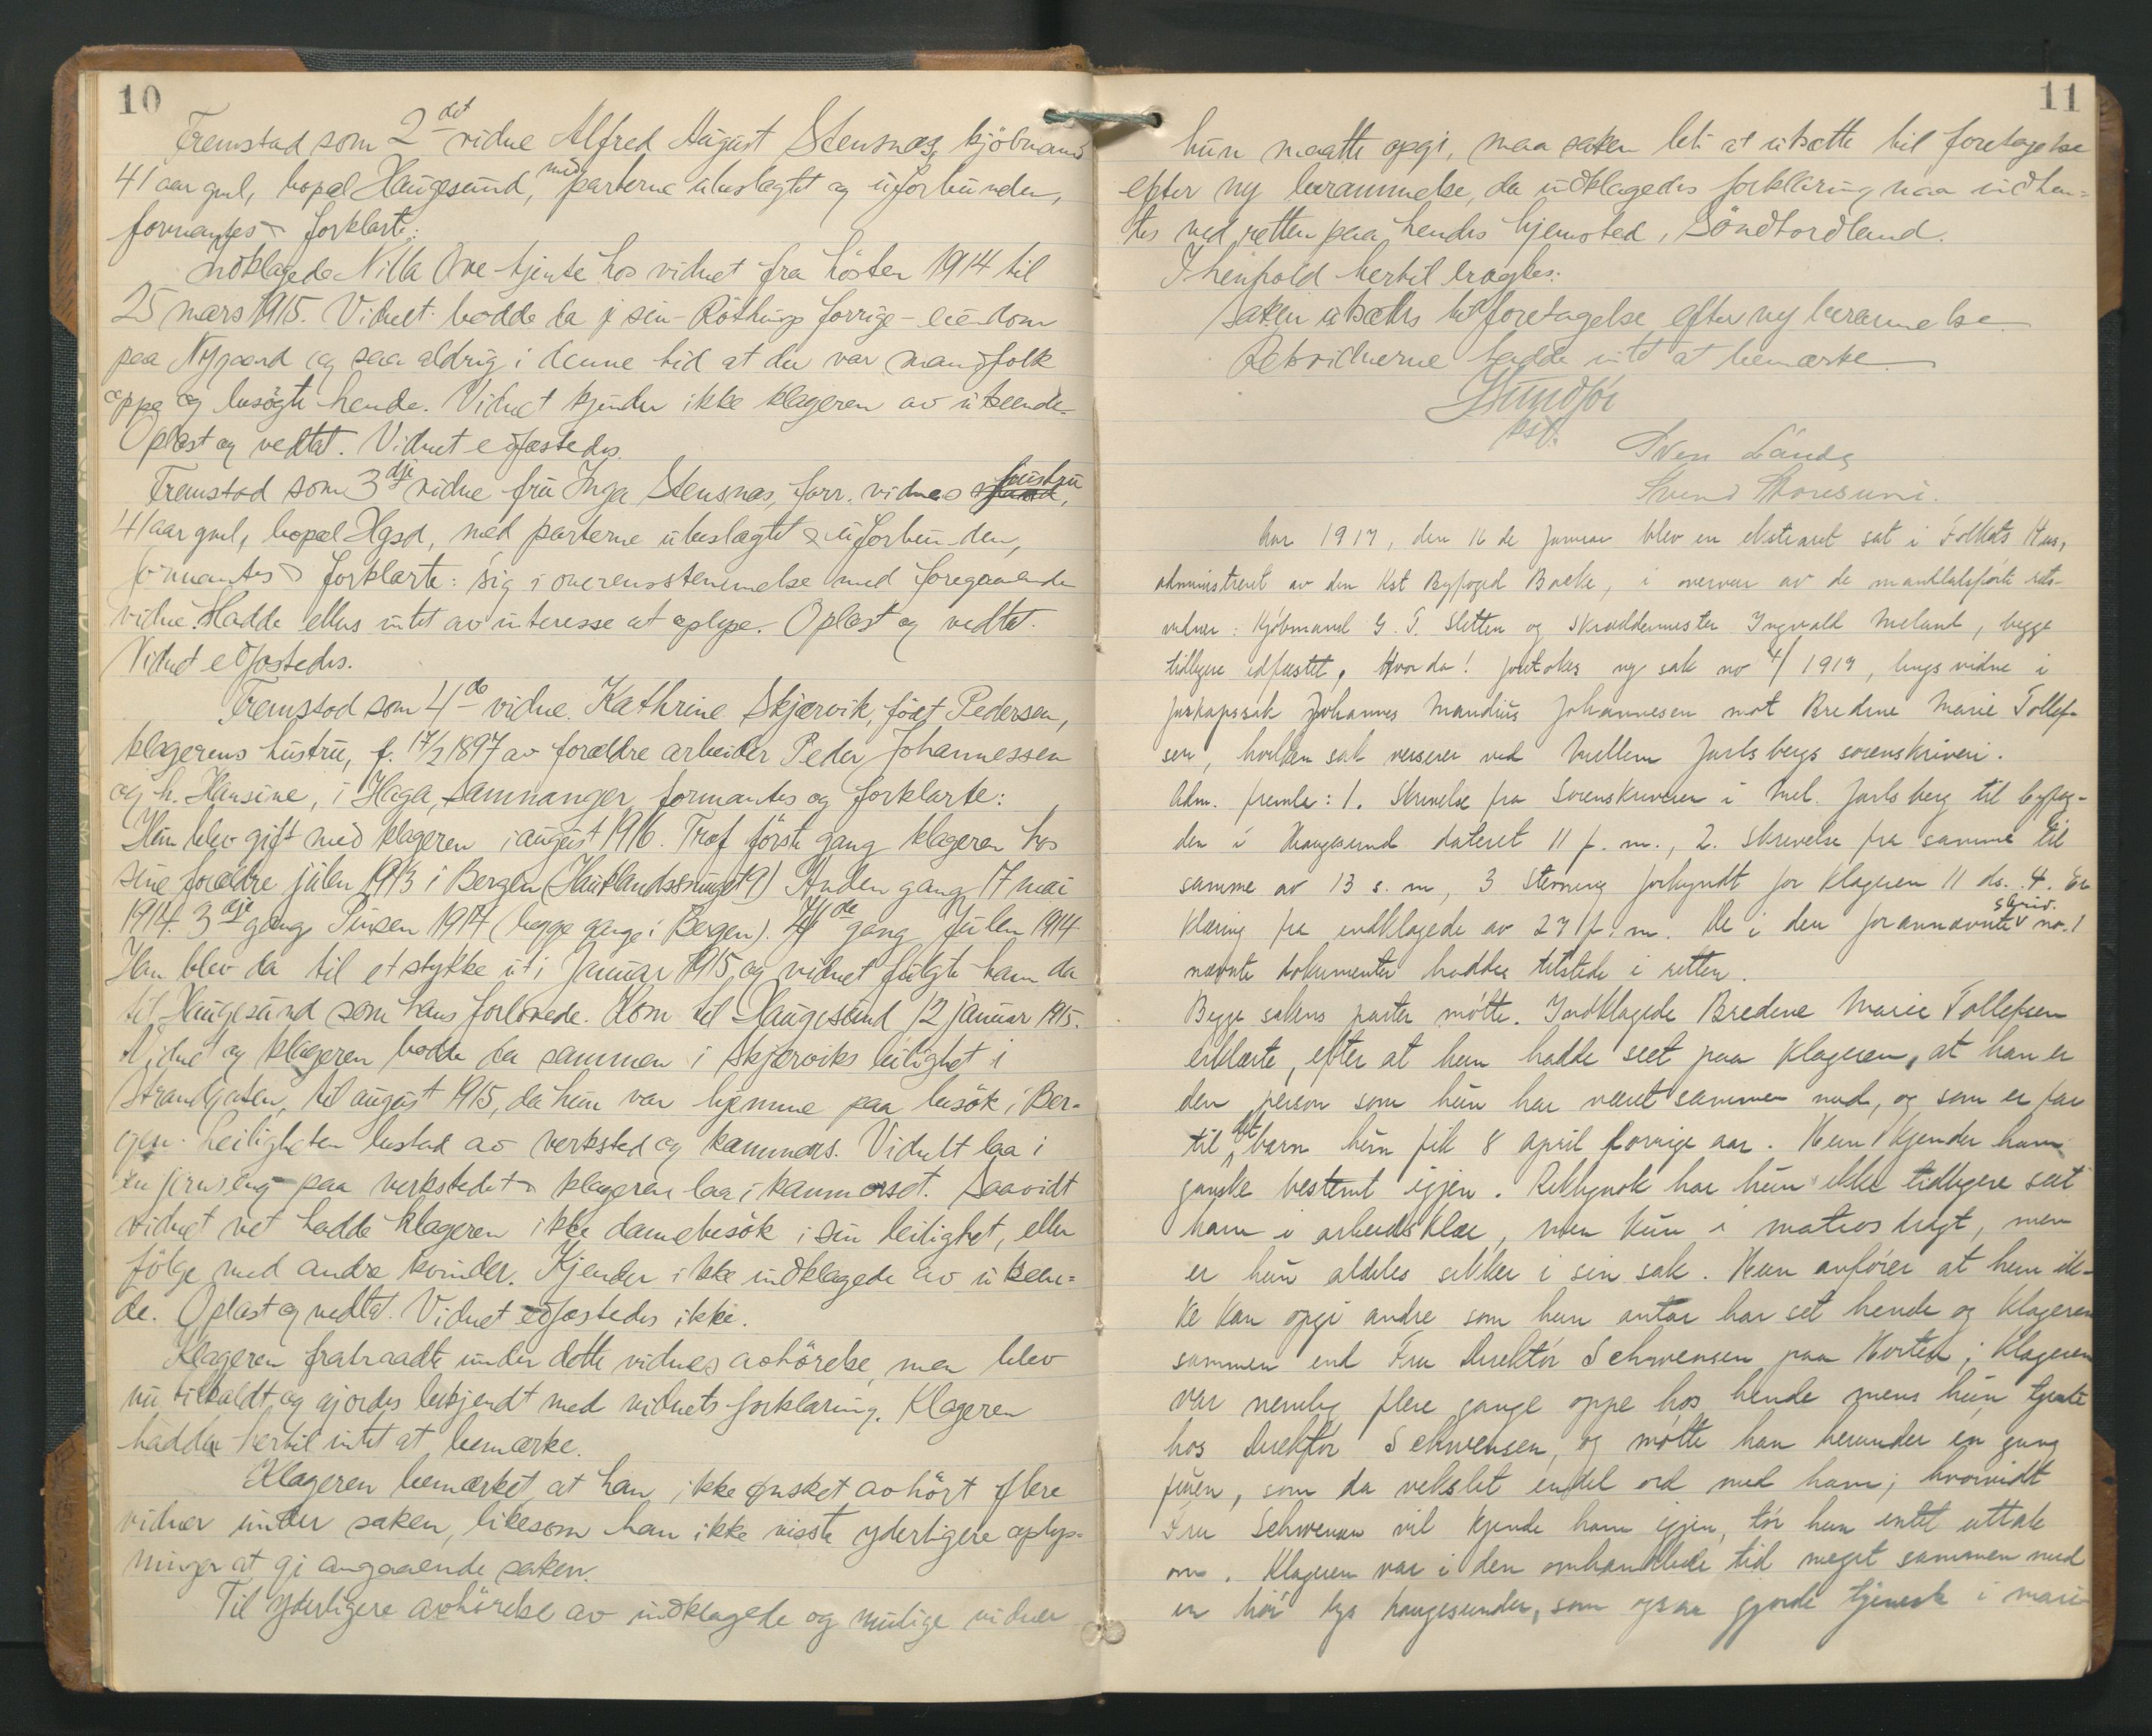 10
Fremstod som 2det vidne Alfred August Stensnæs, kjöbmand
41 aar gml, bopæl Haugesund, med parterne ubeslægtet og uforbunden,
formantes & forklarte:
Indklagede Nilla Ove tjente hos vidnet fra hösten 1914 til
25 mars 1915. Vidnet bodde da i sin - Röthings forrige - eiendom
paa Nygaard og saa aldrig i denne tid at der var mandfolk
oppe og besögte hende. Vidnet kjender ikke klageren av utseende.
Oplæst og vedtat. Vidnet edfæstedes.
Fremstod som 3dje vidne fru Inga Stensnæs, forr. vidnes hustru,
41 aar gml, bopæl Hgsd, med parterne ubeslægtet & uforbunden,
formantes & forklarte: sig i overensstemmelse med foregaaende
vidne. Hadde ellers intet av interesse at oplyse. Oplæst og vedtat.
Vidnet edfæstedes.
Fremstod som 4de vidne. Kathrine Skjærvik, födt Pedersen,
klagerens hustru, f. 17/2 1897 av forældre arbeider Peder Johannessen
og h. Hansine, i Haga, Samnanger, formantes og forklarte:
Hun blev gift med klageren i august 1916. Traf förste gang klageren hos
sine forældre julen 1913 i Bergen (Hauklandssmuget 9) Anden gang 17 mai
1914. 3dje gang Pinsen 1914 (begge gange i Bergen). 4de gang Julen 1914
Han blev da til et stykke ut i Januar 1915 og vidnet fulgte ham da
til Haugesund som hans forlovede. Kom til Haugesund 12 januar 1915.
Vidnet og klageren bodde da sammen i Skjærviks leilighet i
Strandgaten, til august 1915, da hun var hjemme paa besök i Ber-
gen. Leiligheten bestod av verksted og kammers. Vidnet laa i
en jernseng paa verkstedet & klageren laa i kammerset. Saavidt
vidnet vet hadde klageren ikke damebesök i sin leilighet, eller
fölge med andre kvinder. Kjender ikke indklagede av utseen=
de. Oplæst og vedtat. Vidnet edfæstedes ikke.
Klageren fratraadte under dette vidnes avhörelse, men blev
nu tilkaldt og gjordes bekjendt med vidnets forklaring. Klageren
hadde hertil intet at bemærke.
Klageren bemærket at han ikke önsket avhört flere
vidner under saken, likesom han ikke visste yderligere oplys-
ninger at gi angaaende saken.
Til yderligere avhörelse av indklagede og mulige vidner
11
hun maatte opgi, maa saken bli at utsætte til foretagelse
efter ny berammelse, da indklagedes forklaring maa indhen=
tes ved retten paa hendes hjemsted, Söndhordland.
I henhold hertil bragtes:
Saken utsættes til foretagelse efter ny berammelse.
Retsvidnerne hadde intet at bemærke.
Sundför
kst.
Sven Lande
Svend Thoresuni.
Aar 1917, den 16 de Januar blev en ekstraret sat i Folkets Hus,
administreret av den kst Byfoged Backe, i overvær av de mandtalsförte rets-
vidner: Kjöbmand G. T. Sletten og Skræddermester Ingvald Meland, begge
tidligere edfæstet. Hvorda! foretokes ny sak no 4/1917, tingsvidne i
farskapssak Johannes Mandius Johannesen mot Bredine Marie Tollef-
sen, hvilken sak verserer ved Mellem Jarlsbergs sorenskriveri.
Adm. fremla: 1. Skrivelse fra Sorenskriveren i Mel. Jarlsberg til byfog-
den i Haugesund dateret 11 f. m., 2. Skrivelse fra samme til
samme av 13 s. m, 3 Stevning forkyndt for klageren 11 ds. 4. Er
klæring fra indklagede av 27 f. m. De i den forannævnte skriv. no. 1
nævnte dokumenter haddes tilstede i retten.
Begge sakens parter mötte. Indklagede Bredine Marie Tollefsen
erklærte, efter at hun hadde seet paa klageren, at han er
den person som hun har været sammen med, og som er far
til det barn hun fik 8 april forrige aar. Hun kjender ham
ganske bestemt igjen. Rettignok har hun ikke tidligere seet
ham i arbeidsklær, men kun i matrosdragt, men
er hun aldeles sikker i sin sak. Hun anförer at hun ik-
ke kan opgi andre som hun antar har set hende og klageren
sammen end Fru Direktör Schwensen paa Horten; klageren
var nemlig flere gange oppe hos hende mens hun tjente
hos Direktör Schwensen, og mötte han herunder en gang
fruen, som da vekslet endel ord med ham; hvorvidt
Fru Schwensen vil kjende ham igjen, tör hun intet uttale
om. Klageren var i den omhandlede tid meget sammen med
en höi lys haugesunder, som ogsaa gjorde tjeneste i mari-